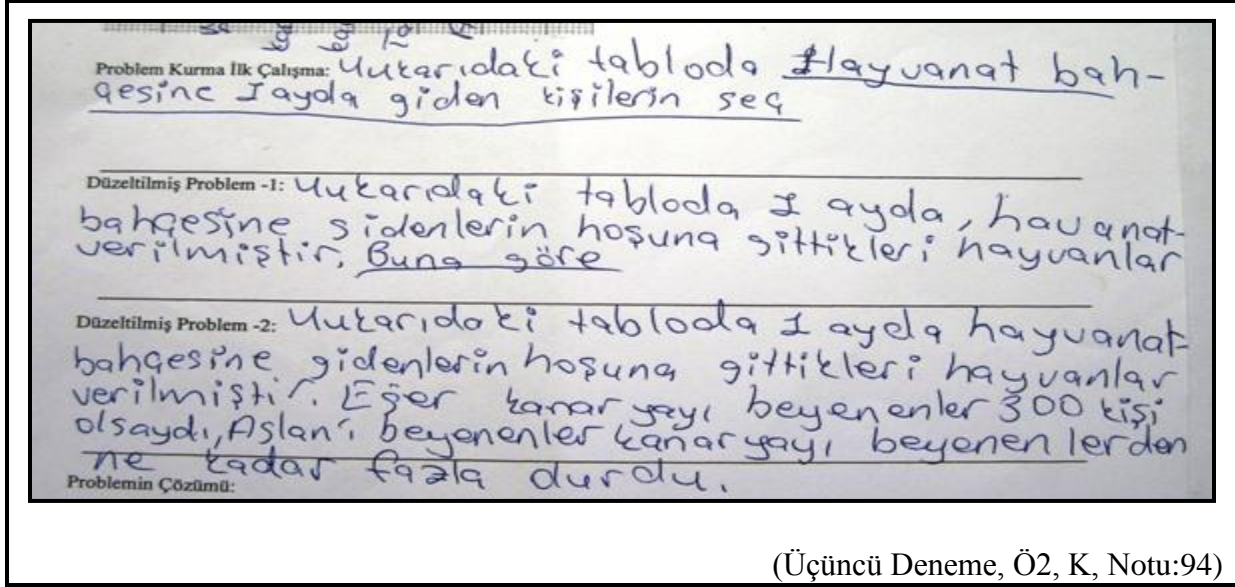 Problem Kurma İlk Çalışma: Yukarıdaki tabloda Hayvanat bah-
çesine 1 ayda giden kişilerin seç
Düzeltilmiş Problem -1: Yukarıdaki tabloda 1 ayda, havanat-
bahçesine gidenlerin hoşuna gittikleri hayvanlar
verilmiştir. Buna göre
Düzeltilmiş Problem -2: Yukarıdaki tabloda 1 ayda hayvanat-
bahçesine gidenlerin hoşuna gittikleri hayvanlar
verilmiştir. Eğer kanaryayı beyenenler 300 kişi
olsaydı, Aslan'ı beyenenler kanaryayı beyenenlerden
ne kadar fazla durdu.
Problemin Çözümü:
(Üçüncü Deneme, Ö2, K, Notu:94)